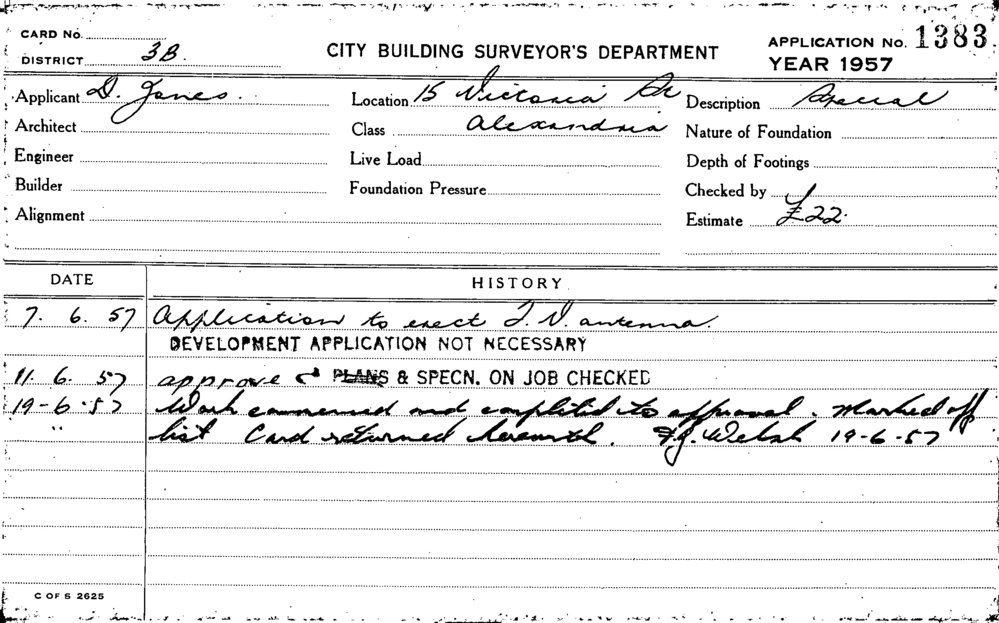 CARD No.
DISTRICT 3B.
CITY BUILDING SURVEYOR'S DEPARTMENT
APPLICATION No. 1383
YEAR 1957
Applicant D. Jones.
Location 15 Victoria St
Description Special
Architect
Class Alexandria
Nature of Foundation
Engineer
Live Load
Depth of Footings
Builder
Foundation Pressure
Checked by
Alignment
Estimate £22.
DATE
HISTORY
7. 6. 57 Application to erect T.V. antenna.
DEVELOPMENT APPLICATION NOT NECESSARY
11. 6. 57 approve PLANS & SPECN. ON JOB CHECKED
19-6-57 Work commenced and completed to approval. Marked off
" list Card returned herewith. F.J. Welsh 19-6-57
C OF S 2625